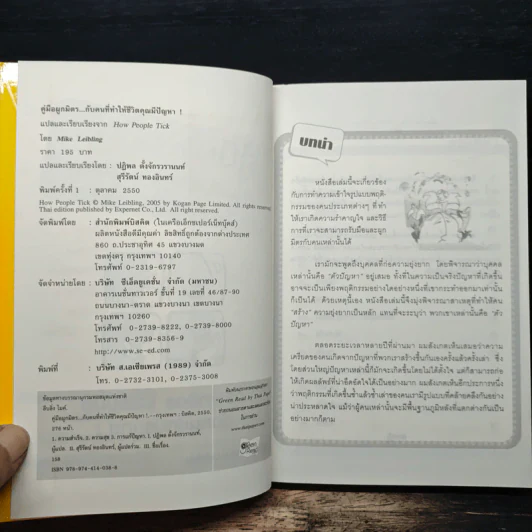 คู่มือผูกมิตร...กับคนที่ทำให้ชีวิตคุณมีปัญหา !
แปลและเรียบเรียงจาก How People Tick
โดย Mike Leibling
ราคา 195 บาท
แปลและเรียบเรียงโดย : ปฏิพล ตั้งจักรวรานนท์
สุรีรัตน์ ทองอินทร์
พิมพ์ครั้งที่ 1 : ตุลาคม 2550
How People Tick © Mike Leibling, 2005 by Kogan Page Limited. All rights reserved.
Thai edition published by Expernet Co., Ltd. All right reserved.
จัดพิมพ์โดย : สำนักพิมพ์บิสคิต (ในเครือเอ็กซเปอร์เน็ทบุ๊คส์)
ผลิตหนังสือดีมีคุณค่า ลิขสิทธิ์ถูกต้องจากต่างประเทศ
860 ถ.ประชาอุทิศ 45 แขวงบางมด
เขตทุ่งครุ กรุงเทพฯ 10140
โทรศัพท์ 0-2319-6797
จัดจำหน่ายโดย : บริษัท ซีเอ็ดยูเคชั่น จำกัด (มหาชน)
อาคารเนชั่นทาวเวอร์ ชั้นที่ 19 เลขที่ 46/87-90
ถนนบางนา-ตราด แขวงบางนา เขตบางนา
กรุงเทพฯ 10260
โทรศัพท์ 0-2739-8222, 0-2739-8000
โทรสาร 0-2739-8356-9
http://www.se-ed.com
พิมพ์ที่ : บริษัท ส.เอเซียเพรส (1989) จำกัด
โทร. 0-2732-3101, 0-2375-3008
ข้อมูลทางบรรณานุกรมหอสมุดแห่งชาติ
ลีบลิง ไมค์.
คู่มือผูกมิตร...กับคนที่ทำให้ชีวิตคุณมีปัญหา !.--กรุงเทพฯ : บิสคิต, 2550.
276 หน้า.
1. ความสำเร็จ. 2. ความสุข 3. การแก้ปัญหา. I. ปฏิพล ตั้งจักรวรานนท์,
ผู้แปล II. สุรีรัตน์ ทองอินทร์, ผู้แปลร่วม. III. ชื่อเรื่อง.
158
Green Read by Thai Paper
บทนำ
หนังสือเล่มนี้จะเกี่ยวข้อง
กับการทำความเข้าใจรูปแบบพฤติ-
กรรมของคนประเภทต่างๆ ที่ ทำ
ให้เราเกิดความรำคาญใจ และวิธี
การที่เราจะสามารถรับมือและผูก
มิตรกับคนเหล่านั้นได้
เรามักจะพูดถึงบุคคลที่ก่อความยุ่งยาก โดยพิจารณาว่าบุคคล
เหล่านั้นคือ "ตัวปัญหา" อยู่เสมอ ทั้งที่ในความเป็นจริงปัญหาที่เกิดขึ้น
อาจจะเป็นเพียงพฤติกรรมอย่างใดอย่างหนึ่งที่เขากระทำออกมาเท่านั้น
ก็เป็นได้ ด้วยเหตุนี้เอง หนังสือเล่มนี้จึงมุ่งพิจารณาสาเหตุที่ทำให้คน
"สร้าง" ความยุ่งยากเป็นหลัก แทนที่จะระบุว่า พวกเขาเหล่านั้นคือ "ตัว
ปัญหา"
ตลอดระยะเวลาหลายปีที่ผ่านมา ผมสังเกตเห็นเสมอว่าความ
เครียดของคนเกิดจากปัญหาที่พวกเราสร้างขึ้นกันเองครั้งแล้วครั้งเล่า ซึ่ง
โดยส่วนใหญ่ปัญหาเหล่านี้ก็มักจะเกิดขึ้นโดยไม่ได้ตั้งใจ แต่ก็สามารถก่อ
ให้เกิดผลลัพธ์ที่น่าอึดอัดใจได้เป็นอย่างมาก ผมสังเกตเห็นอีกประการหนึ่ง
ว่าพฤติกรรมที่เกิดขึ้นซ้ำแล้วซ้ำเล่าของคนเรามีรูปแบบที่คล้ายคลึงกันอย่าง
น่าประหลาดใจ แม้ว่าผู้คนเหล่านั้นจะมีพื้นฐานภูมิหลังที่แตกต่างกันเป็น
อย่างมากก็ตาม